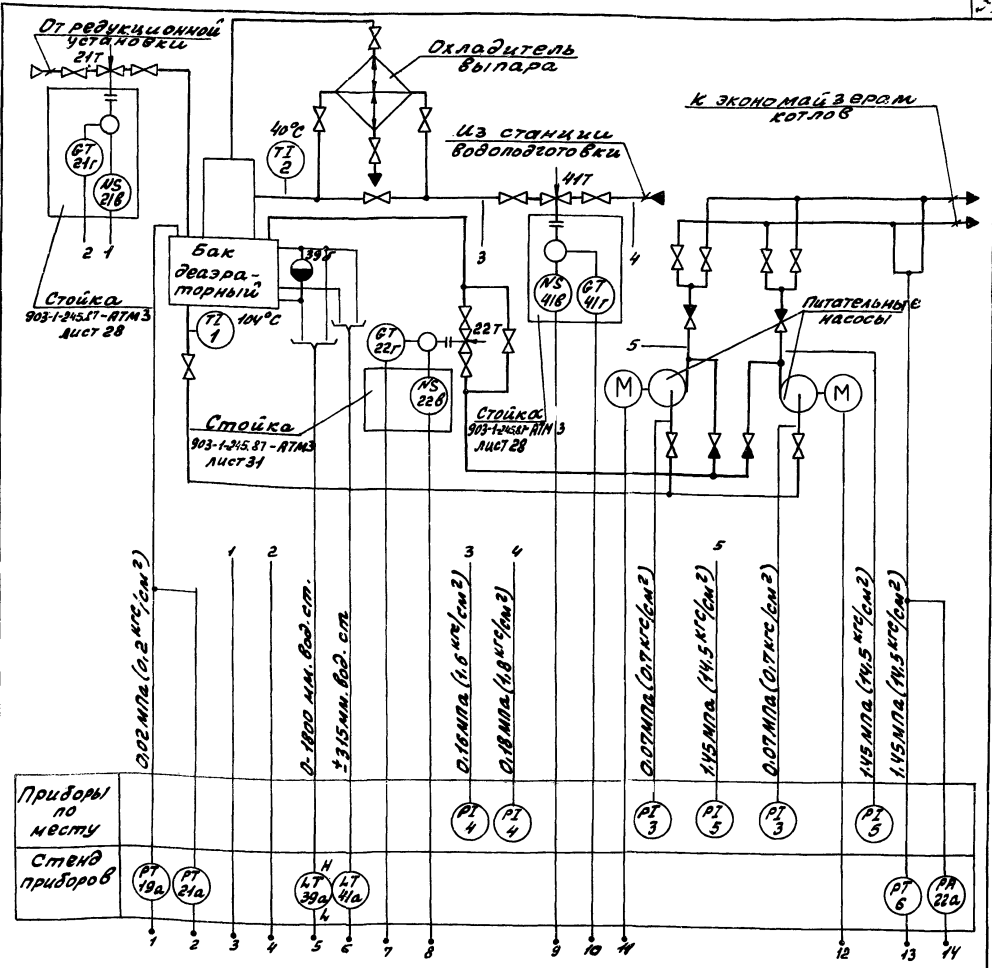 От редукционной
установки
21Т
GT
21г
NS
21в
2
1
Стойка
903-1-245.87-АТМ3
Лист 28
Охладитель
выпара
40°С
TI
2
Из станции
водоподготовки
41Т
3
4
NS
41в
GT
41г
Стойка
903-1-245.87-АТМ3
Лист 28
К экономайзерам
котлов
Бак
деаэра-
торный
39б
TI
1
104°С
GT
22г
22Т
NS
22в
Стойка
903-1-245.87-АТМ3
Лист 31
Питательные
насосы
5
М
М
0.02 МПа (0.2 кгс/см²)
1
2
0-1800 мм.вод.ст.
±315 мм.вод.ст
3
0.16 МПа (1.6 кгс/см²)
4
0.18 МПа (1.8 кгс/см²)
0.07 МПа (0.7 кгс/см²)
5
1.45 МПа (14.5 кгс/см²)
0.07 МПа (0.7 кгс/см²)
1.45 МПа (14.5 кгс/см²)
1.45 МПа (14.5 кгс/см²)
Приборы
по
месту
PI
4
PI
4
PI
3
PI
5
PI
3
PI
5
Стенд
приборов
PT
19а
PT
21а
H
LT
39а
L
LT
41а
PT
6
РА
22а
1
2
3
4
5
6
7
8
9
10
11
12
13
14